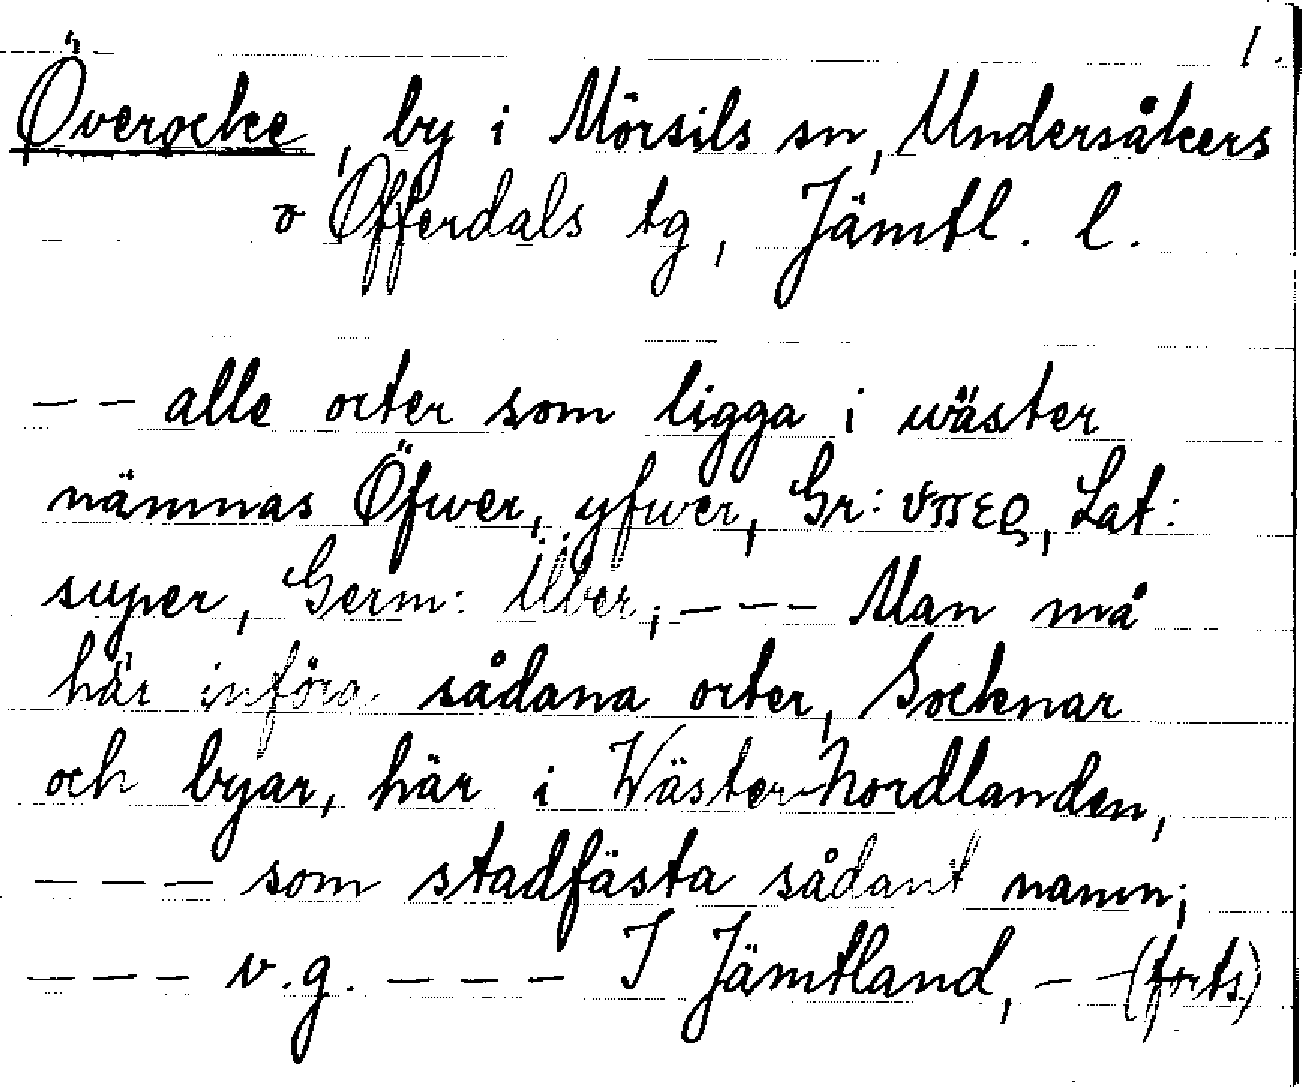 1.
Överocke, by i Mörsils sn, Undersåkers
o Offerdals tg, Jämtl. l.
– – alle orter som ligga i wäster
nämnas Öfwer, yfwer, Gr: ὑπερ, Lat:
super, Germ: Über; – – – Man må
här införa sådana orter, Socknar
och byar, här i Wäster-Nordlanden,
– – – som stadfästa sådant namn;
– – – v.g. – – – I Jämtland, – – (forts)